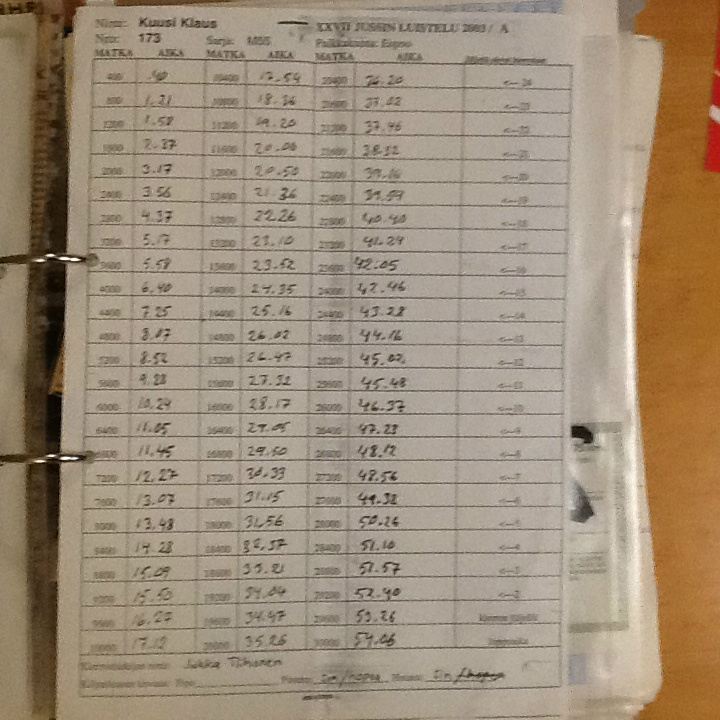 Nimi: Kuusi Klaus XXVII JUSSIN LUISTELU 2003 / A
Nro: 173 Sarja: M55 Paikkakunta: Espoo
MATKA AIKA MATKA AIKA MATKA AIKA
400 .40 10400 17.54 20400 36.20 <--24
800 1.21 10800 18.36 20800 37.02 <--23
1200 1.58 11200 19.20 21200 37.46 <--22
1600 2.37 11600 20.06 21600 38.32 <--21
2000 3.17 12000 20.50 22000 39.16 <--20
2400 3.56 12400 21.36 22400 39.59 <--19
2800 4.37 12800 22.26 22800 40.40 <--18
3200 5.17 13200 23.10 23200 41.24 <--17
3600 5.58 13600 23.52 23600 42.05 <--16
4000 6.40 14000 24.35 24000 42.46 <--15
4400 7.25 14400 25.16 24400 43.28 <--14
4800 8.07 14800 26.02 24800 44.16 <--13
5200 8.52 15200 26.47 25200 45.02 <--12
5600 9.38 15600 27.32 25600 45.48 <--11
6000 10.24 16000 28.17 26000 46.37 <--10
6400 11.05 16400 29.05 26400 47.23 <--9
6800 11.45 16800 29.50 26800 48.12 <--8
7200 12.27 17200 30.33 27200 48.56 <--7
7600 13.07 17600 31.15 27600 49.38 <--6
8000 13.48 18000 31.56 28000 50.26 <--5
8400 14.28 18400 32.37 28400 51.10 <--4
8800 15.09 18800 33.21 28800 51.57 <--3
9200 15.50 19200 34.04 29200 52.40 <--2
9600 16.27 19600 34.47 29600 53.26
10000 17.12 20000 35.26 30000 54.06
Jukka Tiihonen